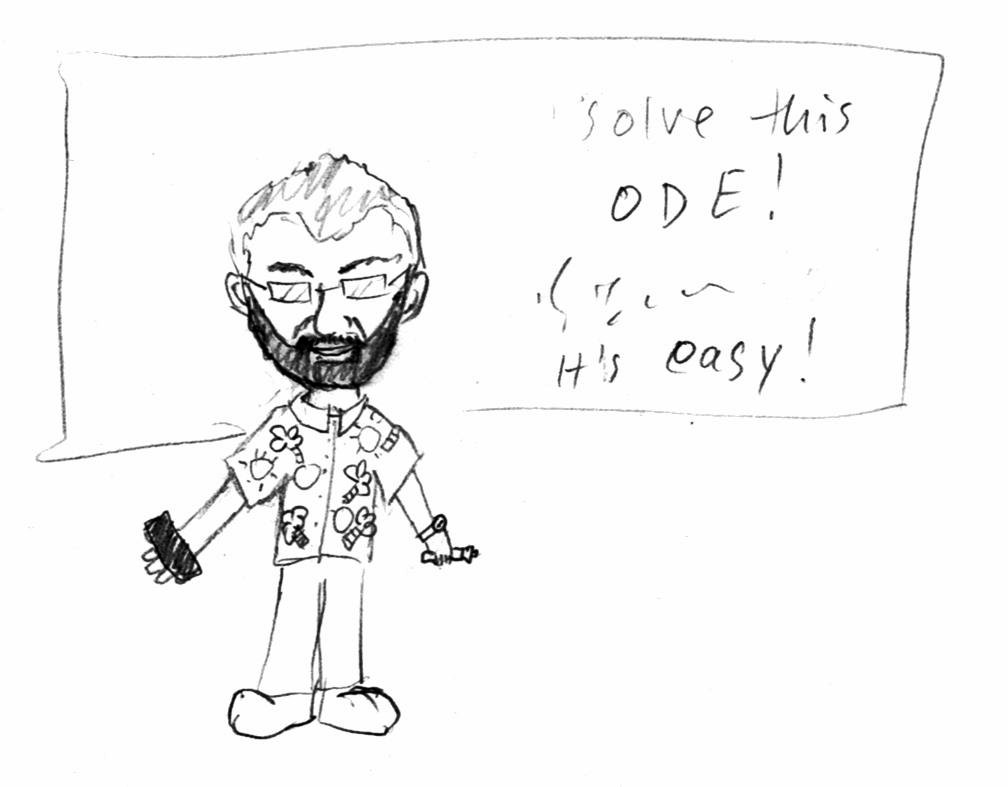 solve this
ODE!
It's easy!